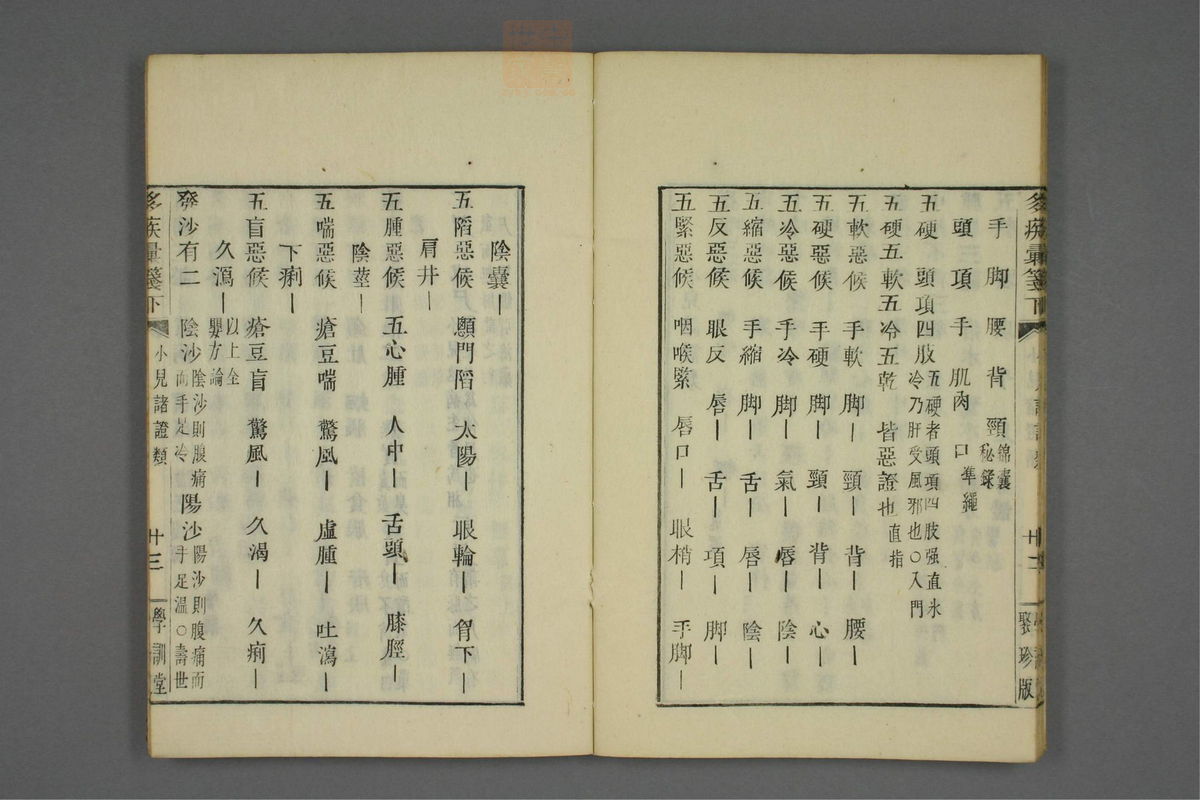 手 脚 腰 背 頸 錦囊秘錄
頭 項 手 肌肉 口 準繩
五硬 頭項四肢 五硬者頭項四肢强直氷冷乃肝受風邪也○入門
五硬五軟五冷五乾 皆惡證也 直指
五軟惡候 手軟 脚｜ 頸｜ 背｜ 腰｜
五硬惡候 手硬 脚｜ 頸｜ 背｜ 心｜
五冷惡候 手冷 脚｜ 氣｜ 唇｜ 陰｜
五縮惡候 手縮 脚｜ 舌｜ 唇｜ 陰｜
五反惡候 眼反 唇｜ 舌｜ 項｜ 脚｜
五緊惡候 咽喉緊 唇口｜ 眼梢｜ 手脚｜
聚珍版
陰囊｜
五䧟惡候 顖門䧟 太陽｜ 眼輪｜ 胷下｜
肩井｜
五腫惡候 五心腫 人中｜ 舌頭｜ 膝脛｜
陰莖｜
五喘惡候 瘡豆喘 驚風｜ 虛腫｜ 吐瀉｜
下痢｜
五盲惡候 瘡豆盲 驚風｜ 久渴｜ 久痢｜
久瀉｜ 以上全嬰方論
發沙有二 陰沙 陰沙則腹痛而手足冷 陽沙 陽沙則腹痛而手足溫○壽世
疾彙箋下 小兒諸證類 廿三 學訓堂